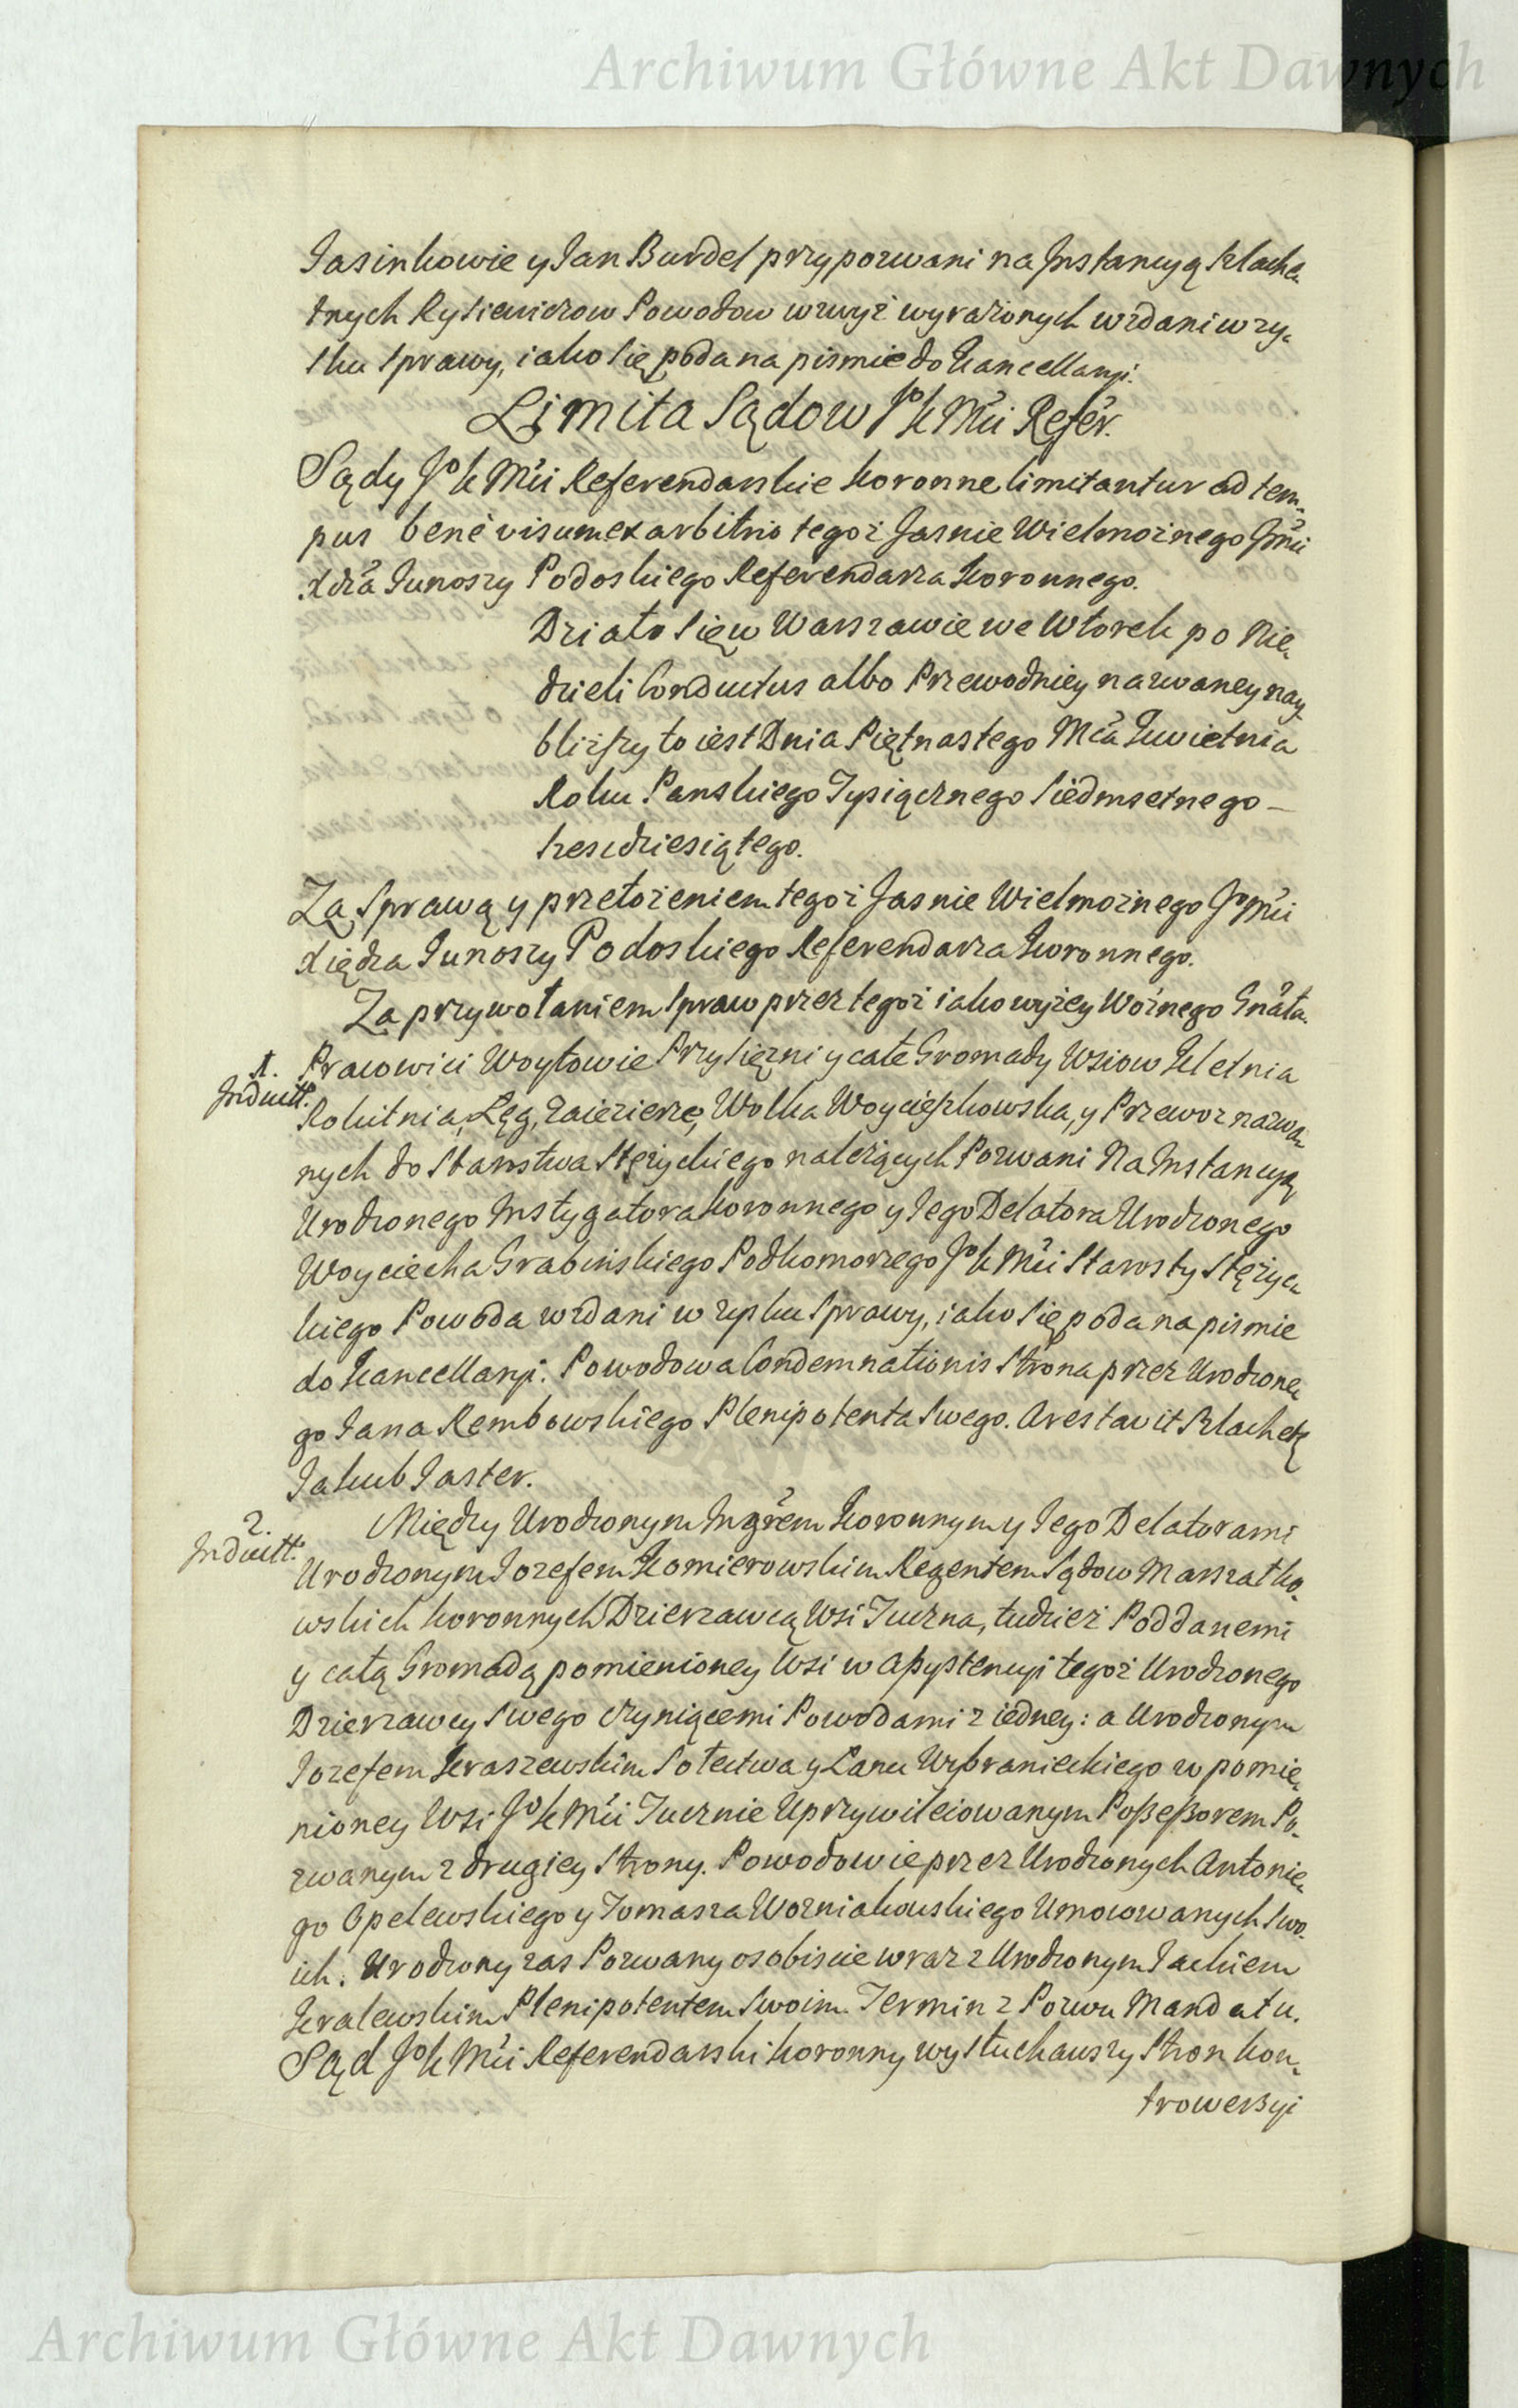 Archiwum Główne Akt Dawnych
Jasinkowie y Jan Burdel przypozwani na Instancyą Szlache
tnych Rysiewiczow Powodow wzwyż wyrażonych wzdani w zy
sku Sprawy, iako się poda na pismie do Kancellaryi.
Limita Sądow Jo K Mci Refer.
Sądy Jo K Mci Referendarskie Koronne limitantur ad tem
pus bene visum ex arbitrio tegoż Jasnie Wielmożnego Jmci
Xdza Junoszy Podoskiego Referendarza Koronnego.
Działo się w Warszawie we Wtorek po Nie
dzieli Conductus albo Przewodniey nazwaney nay
bliższy to iest Dnia Piętnastego Mca Kwietnia
Roku Panskiego Tysiącznego Siedmsetnego
szescdziesiątego.
Za Sprawą y przełożeniem tegoż Jasnie Wielmożnego Jomci
Xiędza Junoszy Podoskiego Referendarza Koronnego.
Za przywołaniem Spraw przez tegoż iako wyżey Woźnego Gnała.
1. Pracowici Woytowie Przysiężni y całe Gromady Wsiow Kletnia
Inductt. Rokitnia, Łęg, Zaiezierze, Wolka Woyciechowska, y Przewoz nazwa
nych do Starostwa Stężyckiego należących Pozwani Na Instancyą
Urodzonego Instygatora Koronnego y Jego Delatora Urodzonego
Woyciecha Grabinskiego Podkomorzego Jo K Mci Starosty Stężyc
kiego Powoda wzdani w zysku Sprawy, iako się poda na pismie
do Kancellaryi. Powodowa Condemnationis Strona przez Urodzone
go Jana Rembowskiego Plenipotenta Swego. Arestavit Szlachetny
Jakub Jaster.
2. Między Urodzonym Ingrem Koronnym y Jego Delatorami
Inductt. Urodzonym Jozefem Komierowskim Regentem Sądow Marszałko
wskich Koronnych Dzierzawcą Wsi Tuczna, tudzież Poddanemi
y całą Gromadą pomienioney Wsi w Assystencyi tegoż Urodzonego
Dzierzawcy Swego czyniącemi Powodami z iedney: a Urodzonym
Jozefem Kraszewskim Sołectwa y Łanu Wybranieckiego w pomie
nioney Wsi Jo K Mci Tucznie Uprzywileiowanym Poßeßorem Po
zwanym z drugiey Strony. Powodowie przez Urodzonych Antonie
go Opelewskiego y Tomasza Wozniakowskiego Umocowanych Swo
ich. Urodzony zas Pozwany osobiscie wraz z Urodzonym Jackiem
Kralewskim Plenipotentem Swoim. Termin z Pozwu Mandatu.
Sąd Jo K Mci Referendarski Koronny wysłuchawszy Stron kon
troweßyi
Archiwum Główne Akt Dawnych